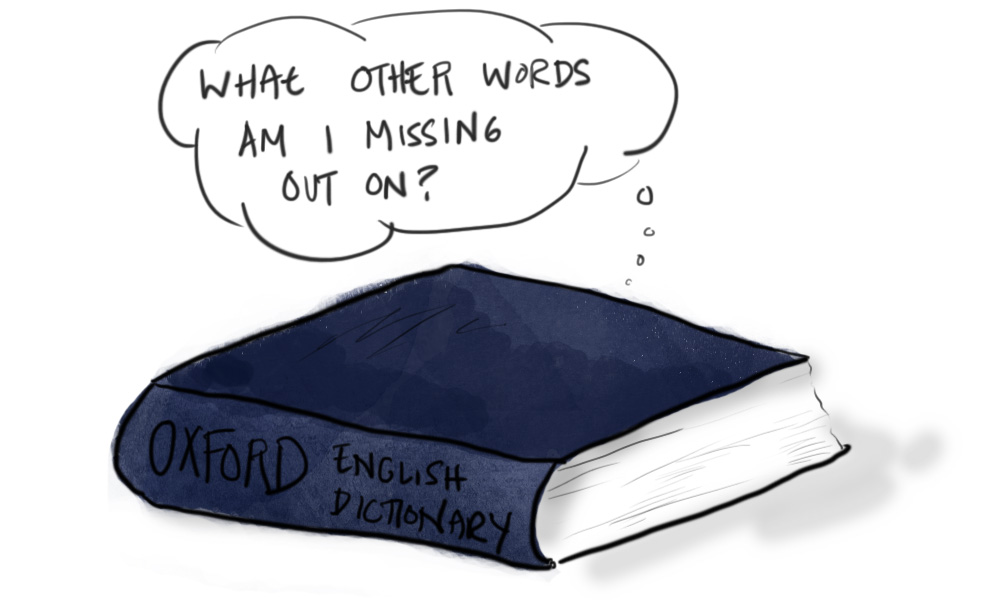 WHAt OTHER WORDS
AM I MISSING
OUT ON?
OXFORD ENGLISH
DICTIONARY